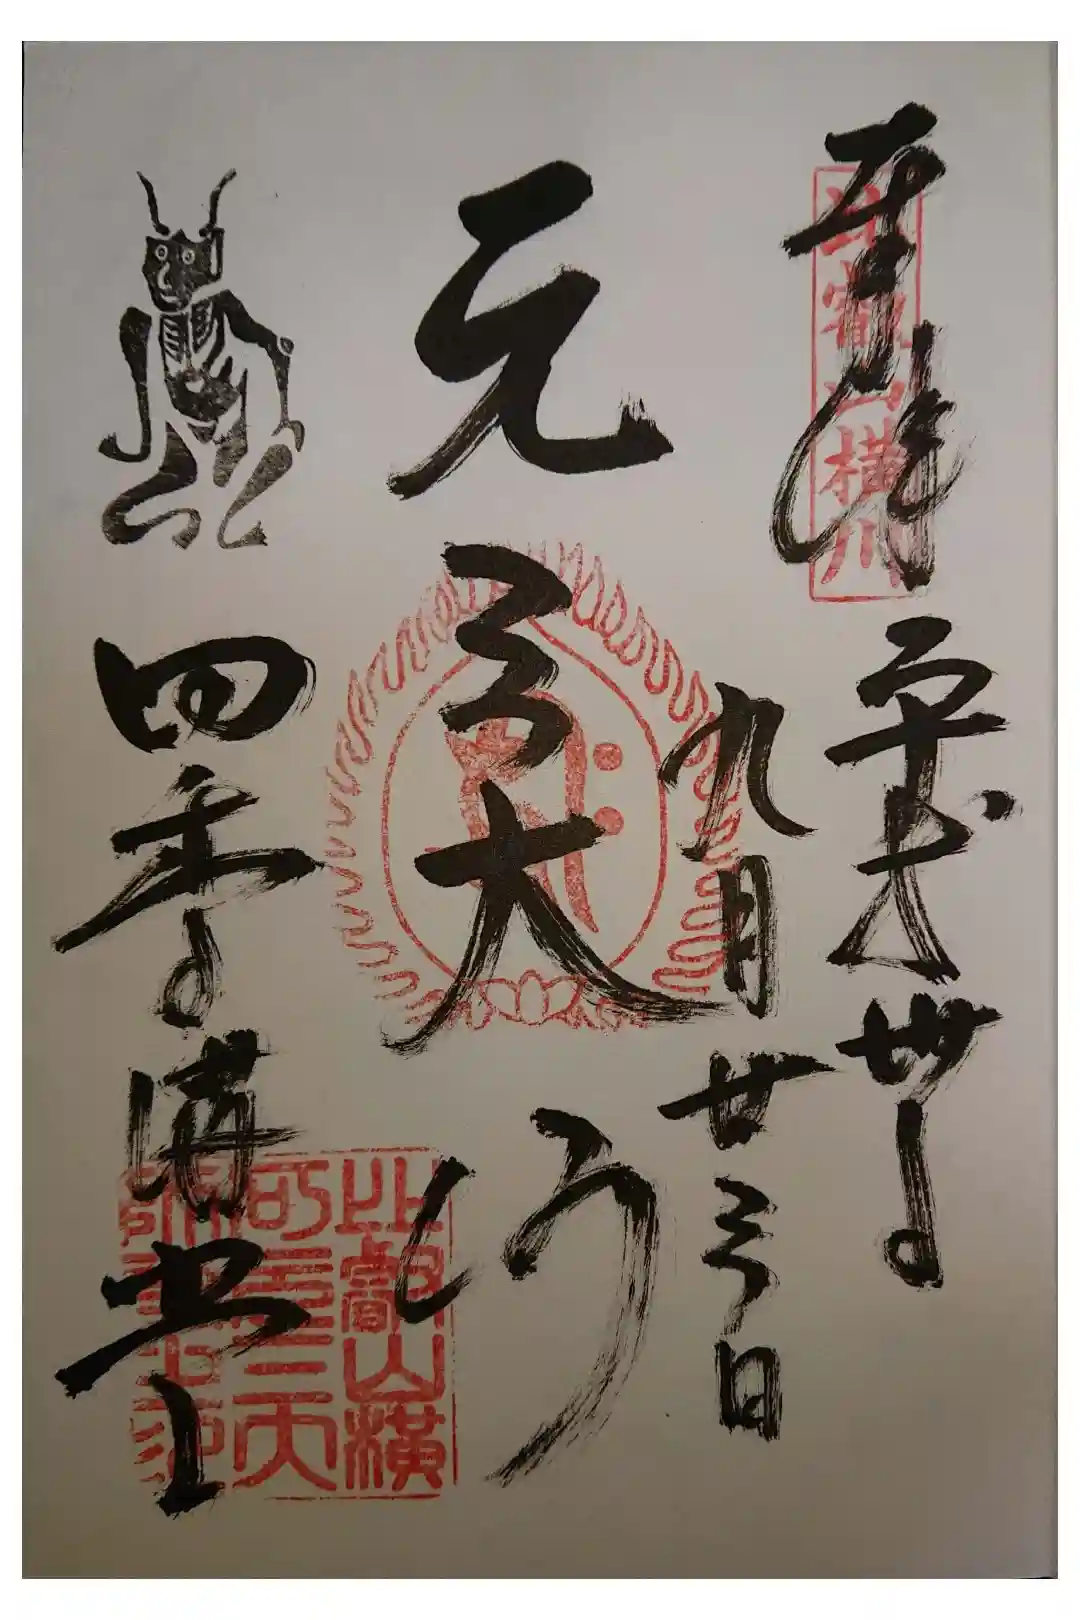 奉拝
比叡山横川
平成卅年
九月廿三日
元三大師
四季講堂
比叡山横
川元三大
師